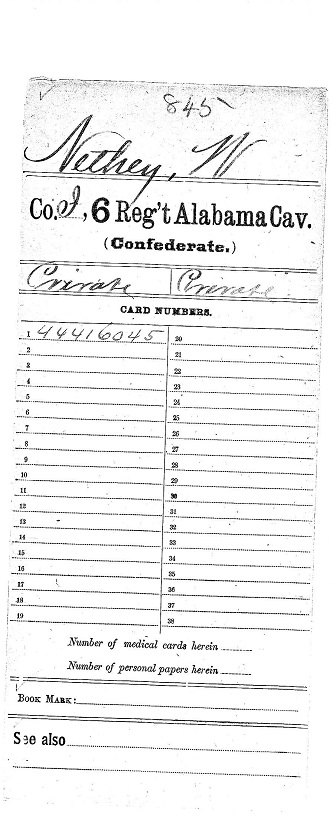 845
Nethey, W
Co. I, 6 Reg't Alabama Cav.
(Confederate.)
Private Private
CARD NUMBERS.
1 44416045 20
2 21
3 22
4 23
5 24
6 25
7 26
8 27
9 28
10 29
11 30
12 31
13 32
14 33
15 34
16 35
17 36
18 37
19 38
Number of medical cards herein
Number of personal papers herein
BOOK MARK:
See also